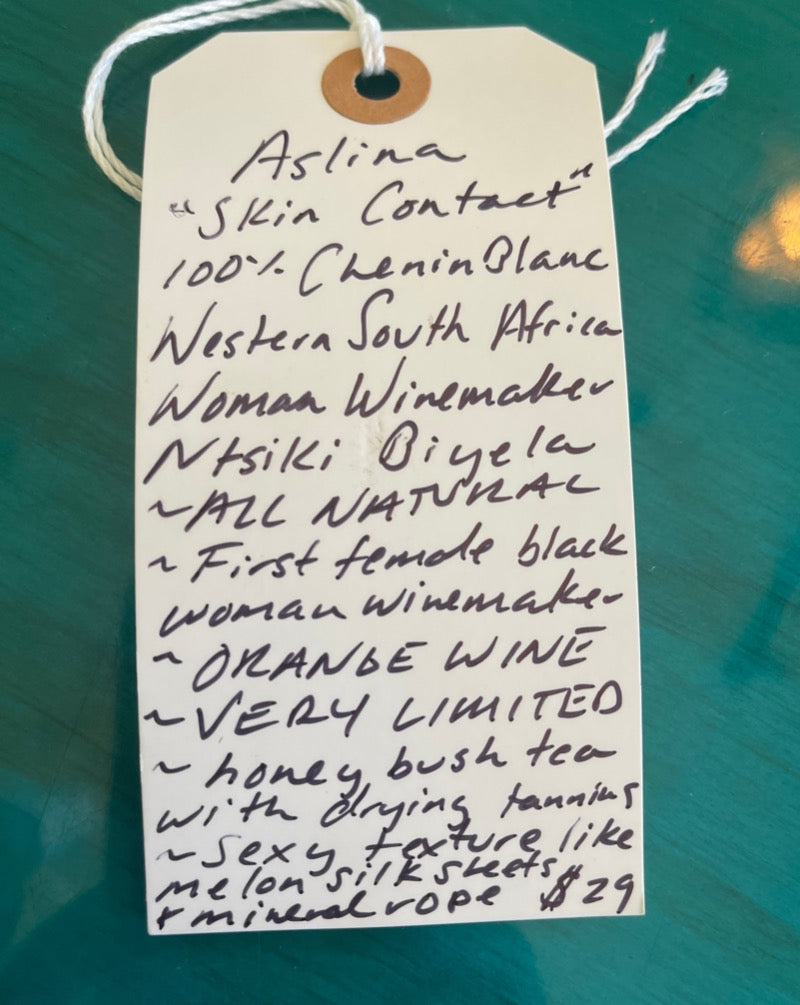 Aslina
"Skin Contact"
100% Chenin Blanc
Western South Africa
Woman Winemaker
Ntsiki Biyela
~ALL NATURAL
~ First female black
woman winemaker
~ORANGE WINE
~VERY LIMITED
~ honey bush tea
with drying tannins
~Sexy texture like
melon silk sheets
+ mineral rope $29